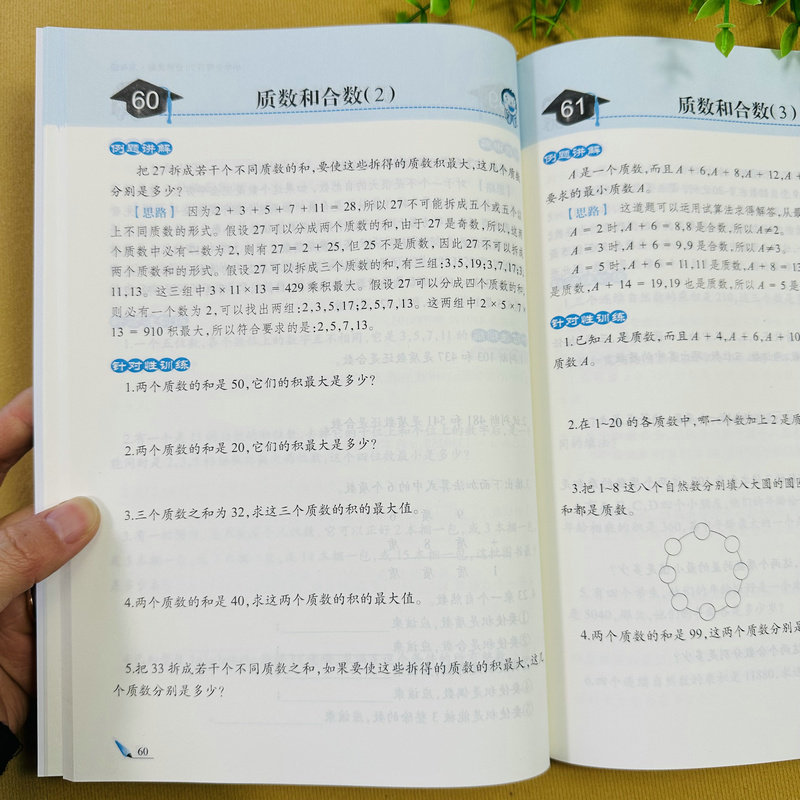 60
质数和合数(2)
例题讲解
把 27 拆成若干个不同质数的和,要使这些拆得的质数积最大,这几个质数
分别是多少?
【思路】 因为 2 + 3 + 5 + 7 + 11 = 28,所以 27 不可能拆成五个或五个以
上不同质数的形式。假设 27 可以分成两个质数的和,由于 27 是奇数,所以,这两
个质数中必有一数为 2, 则有 27 = 2 + 25,但 25 不是质数,因此 27 不可以拆成
两个质数和的形式。假设 27 可以拆成三个质数的和,有三组:3,5,19;3,7,17;3,
11,13。这三组中 3 × 11 × 13 = 429 乘积最大。假设 27 可以分成四个质数的和,
则必有一个数为 2,可以找出两组:2,3,5,17;2,5,7,13。这两组中 2 × 5 × 7 ×
13 = 910 积最大,所以符合要求的是:2,5,7,13。
针对性训练
1.两个质数的和是 50,它们的积最大是多少?
2.两个质数的和是 20,它们的积最大是多少?
3.三个质数之和为 32,求这三个质数的积的最大值。
4.两个质数的和是 40,求这两个质数的积的最大值。
5.把 33 拆成若干个不同质数之和,如果要使这些拆得的质数的积最大,这几
个质数分别是多少?
60
61
质数和合数(3)
例题讲解
A 是一个质数,而且 A + 6,A + 8,A + 12,A +
要求的最小质数 A。
【思路】 这道题可以运用试算法求得解答,从最
A = 2 时,A + 6 = 8,8 是合数,所以 A≠2。
A = 3 时,A + 6 = 9,9 是合数,所以 A≠3。
A = 5 时,A + 6 = 11,11 是质数,A + 8 = 13
是质数,A + 14 = 19,19 也是质数,所以 A = 5 是
针对性训练
1.已知 A 是质数,而且 A + 4,A + 6,A + 10
质数 A。
2.在 1~20 的各质数中,哪一个数加上 2 是质
3.把 1~8 这八个自然数分别填入大圆的圆圈
和都是质数。
4.两个质数的和是 99,这两个质数分别是